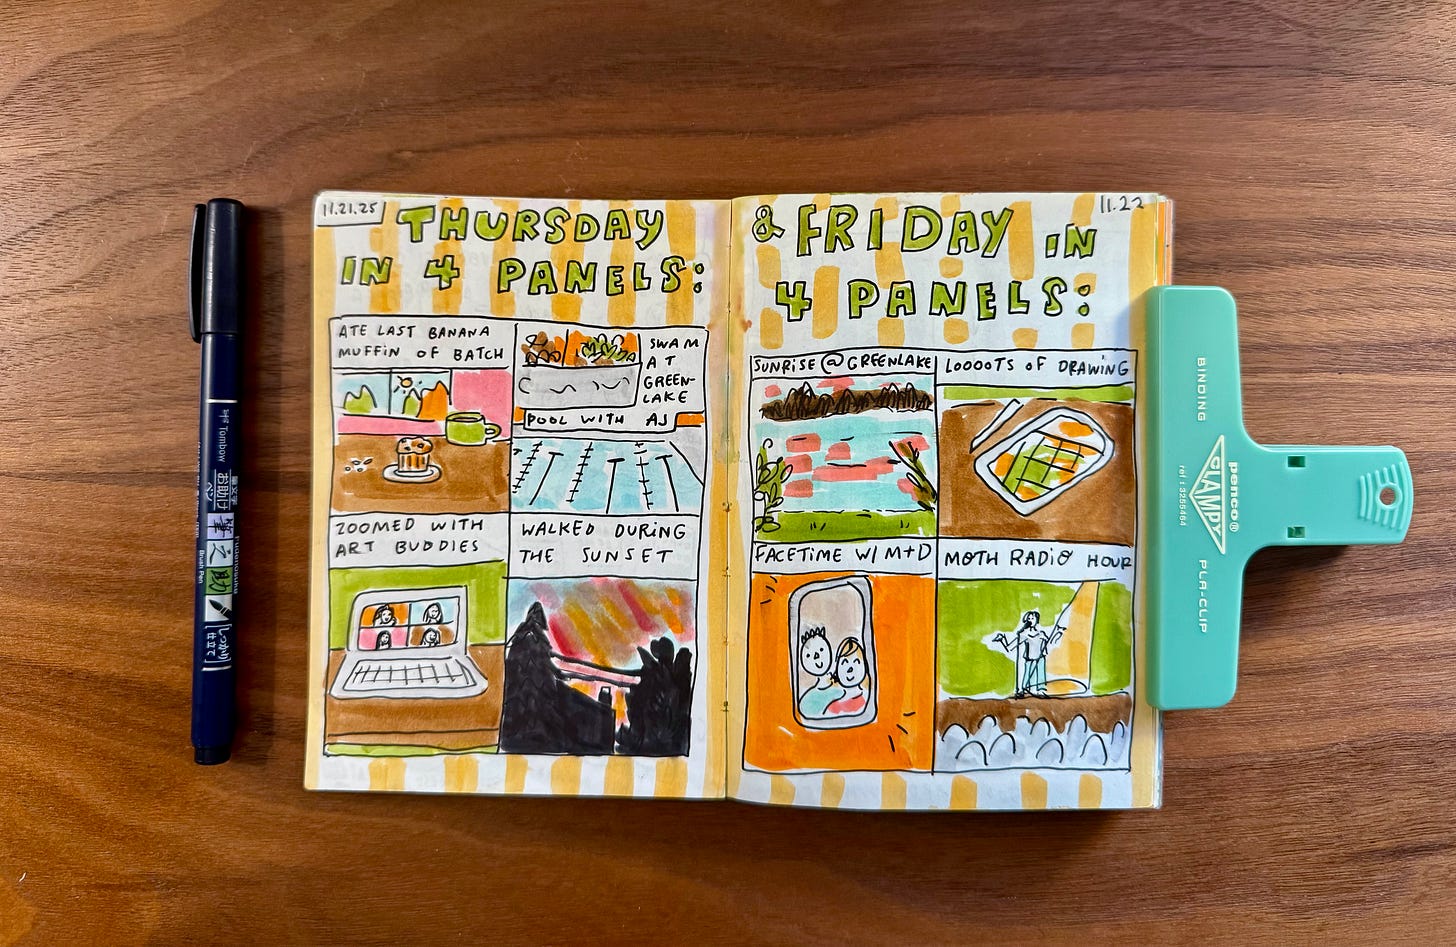 11.21.25
THURSDAY
IN 4 PANELS:
ATE LAST BANANA
MUFFIN OF BATCH
SWAM
AT
GREEN-
LAKE
POOL WITH AJ
ZOOMED WITH
ART BUDDIES
WALKED DURING
THE SUNSET
11.22
& FRIDAY IN
4 PANELS:
SUNRISE @ GREENLAKE
LOOOOTS OF DRAWING
FACETIME W/ M+D
MOTH RADIO HOUR
Tombow
Brush Pen
BINDING
penco®
CLAMPY
ref : 3255464
PLA-CLIP